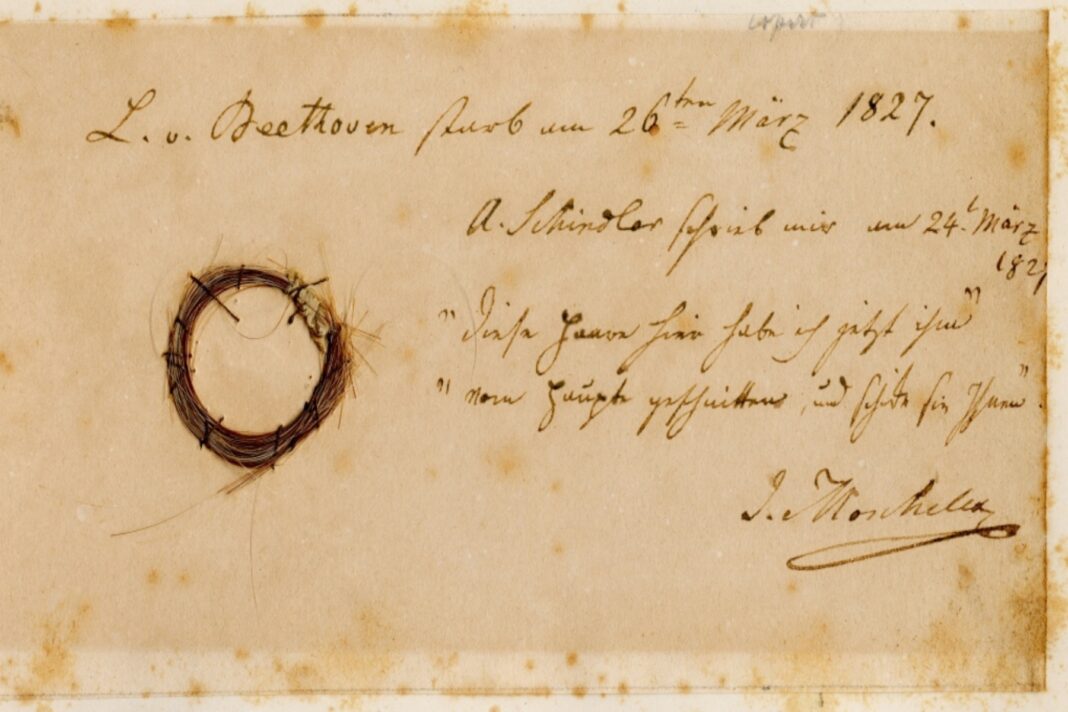 L. v. Beethoven starb am 26ten März 1827.
A. Schindler schrieb mir am 24t. März
1827
"Diese Haare hier habe ich jetzt ihm"
"vom Haupte geschnitten, und schicke sie Ihnen".
I. Moscheles